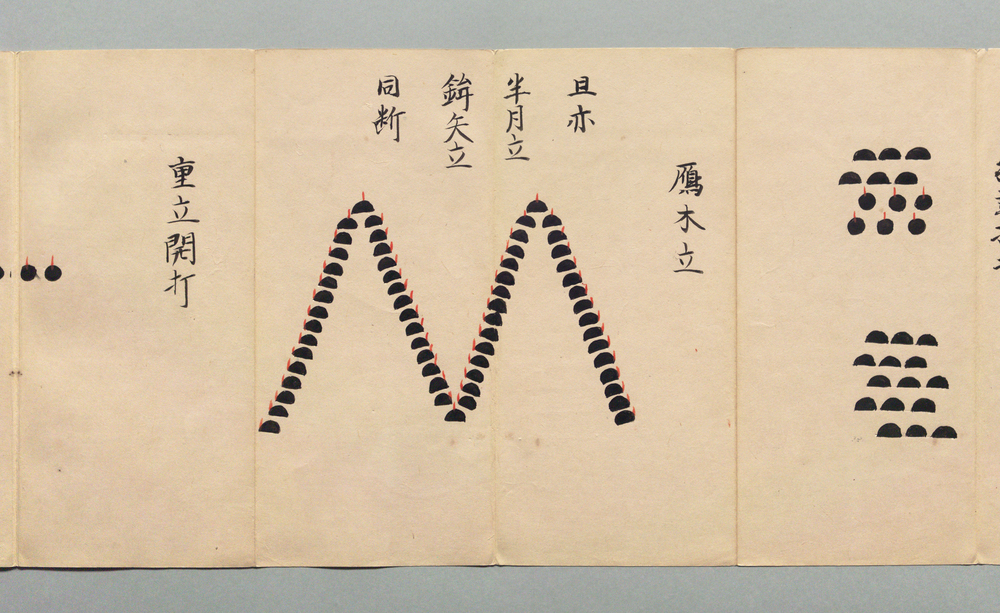 鴈木立
且亦
半月立
鉾矢立
同断
重立開打